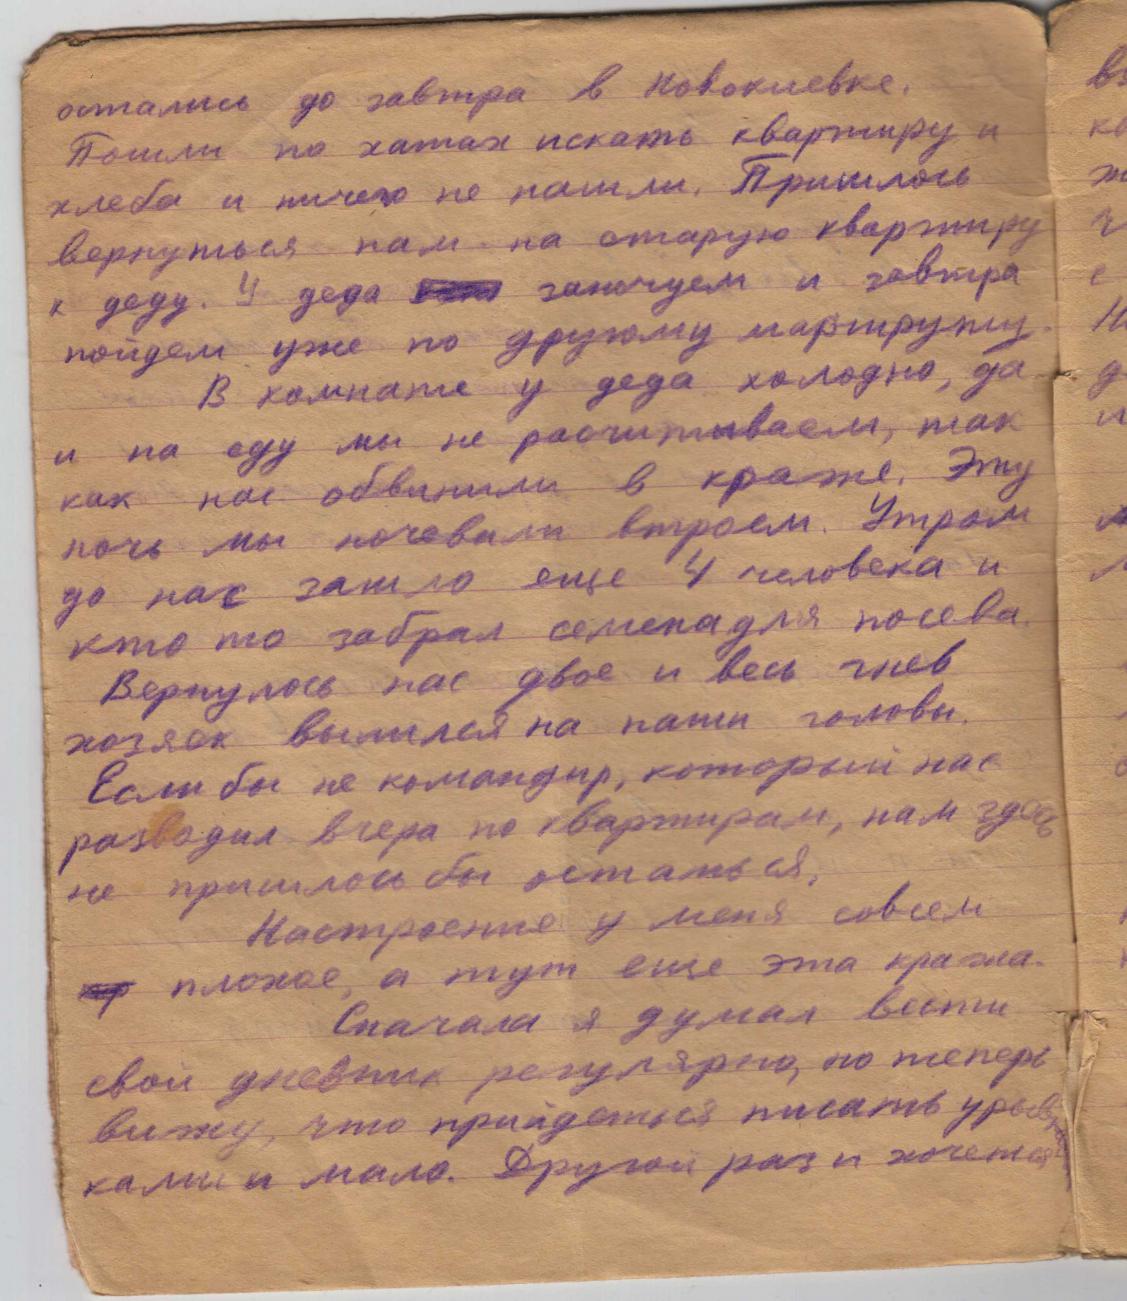 остались до завтра в Новокиевке.
Пошли по хатах искать квартиру и
хлеба и ничего не нашли. Пришлось
вернуться нам на старую квартиру
к деду. У деда заночуем и завтра
пойдем уже по другому маршруту.
В комнате у деда холодно, да
и на еду мы не расчитываем, так
как нас обвинили в краже. Эту
ночь мы ночевали втроем. Утром
до нас зашло еще 4 человека и
кто то забрал семена для посева.
Вернулось нас двое и весь гнев
хозяек вылился на наши головы.
Если бы не командир, который нас
разводил вчера по квартирам, нам здесь
не пришлось бы остаться.
Настроение у меня совсем
плохое, а тут еще эта кража.
Сначала я думал вести
свой дневник регулярно, но теперь
вижу, что прийдеться писать урыв
ками и мало. Другой раз и хочется
вз
ко
ж
ч
с
Н
д
и